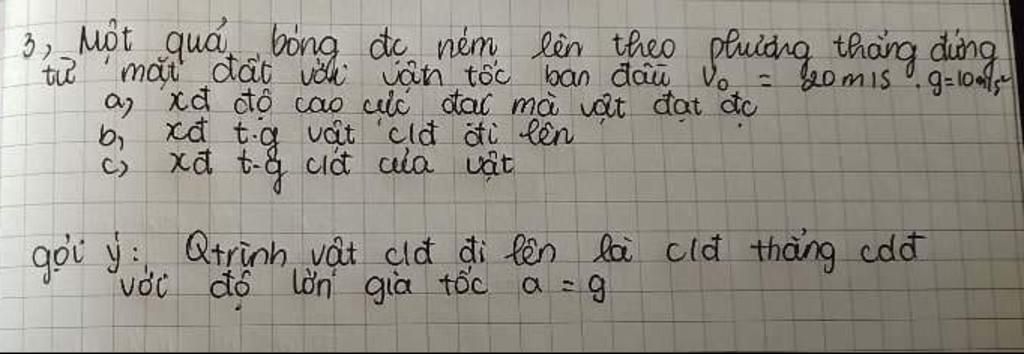 3, Một quả bóng đc ném lên theo phương thẳng đứng
từ mặt đất với vận tốc ban đầu v₀ = 20m/s. g=10m/s²
a, xđ độ cao cực đại mà vật đạt đc
b, xđ t.g vật c/đ đi lên
c, xđ t-g c/đ của vật
gợi ý: Qtrình vật c/đ đi lên là c/đ thẳng cdđ
với độ lớn gia tốc a = g